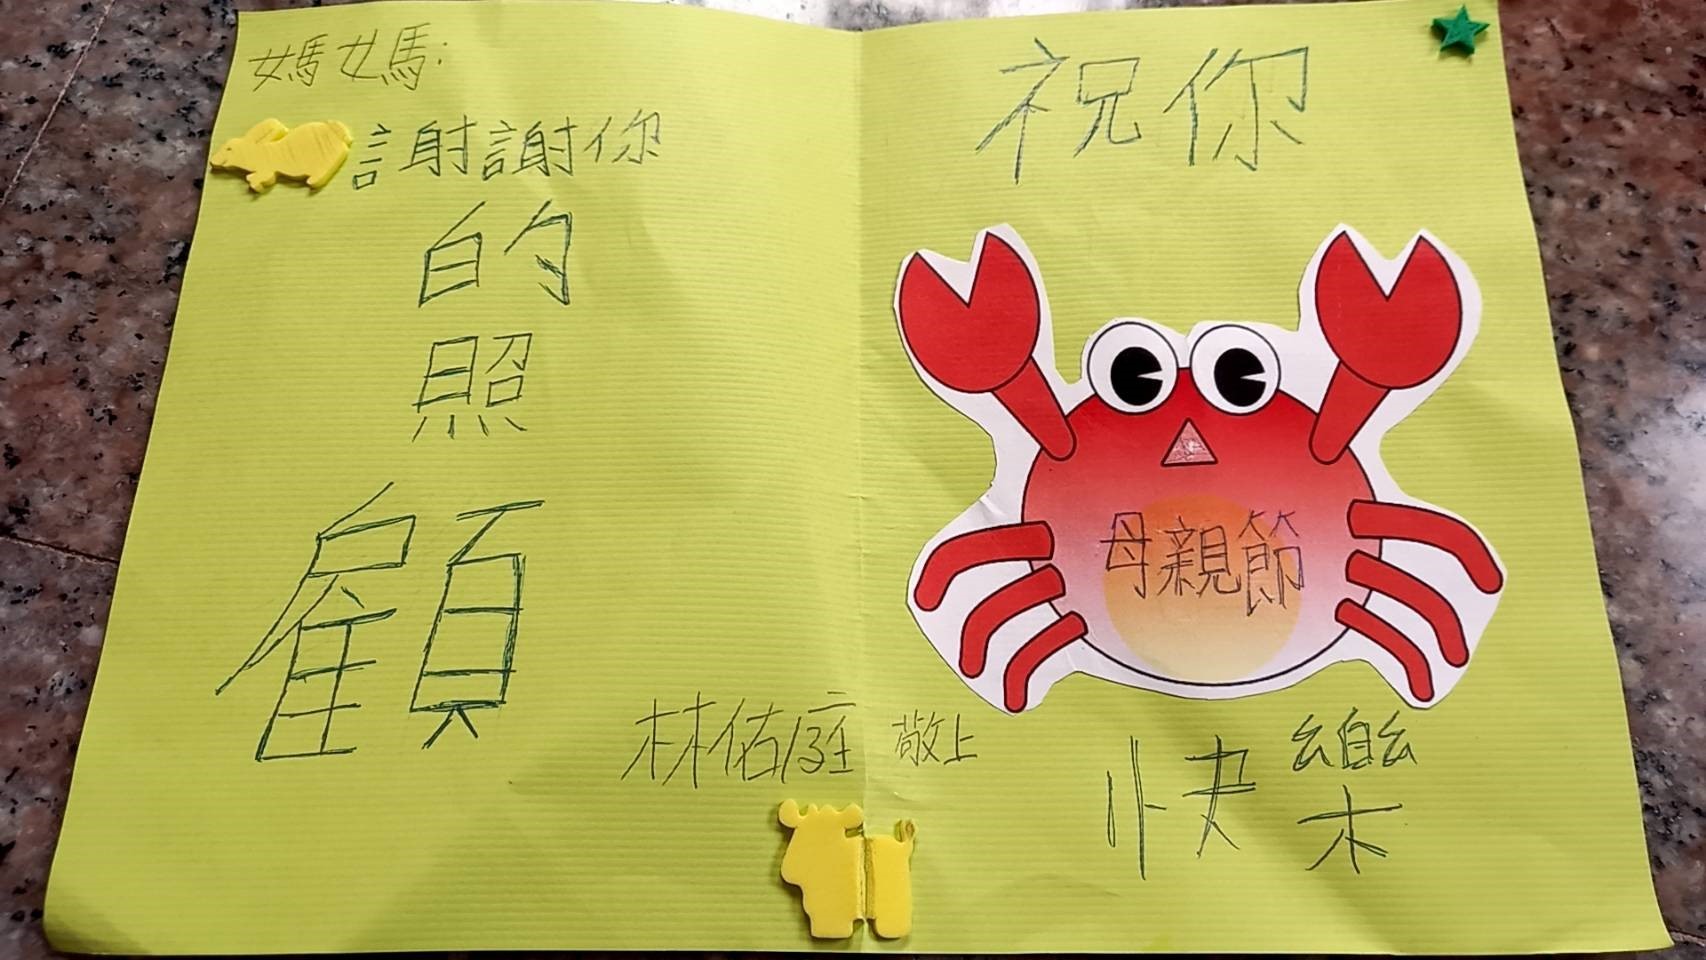 媽媽:
謝謝你
的
照
顧
林佑庭 敬上
祝你
母親節
快樂